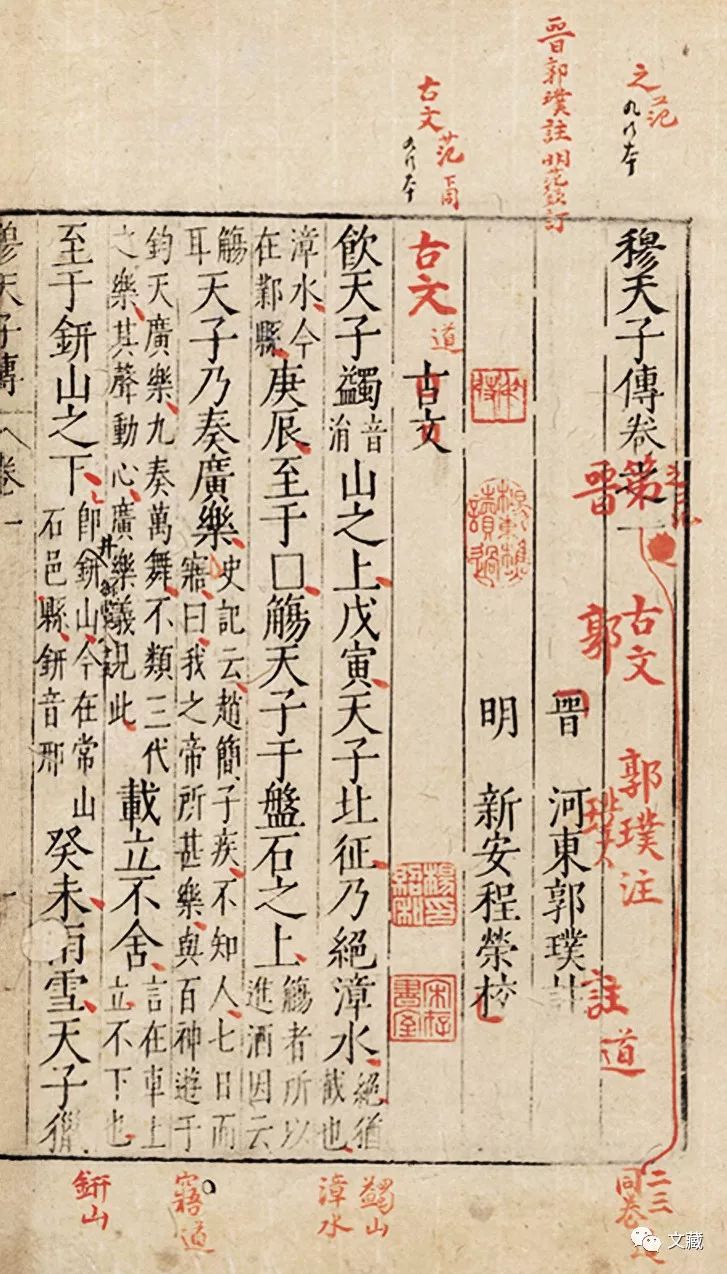 晋郭璞註明范欽訂
之范
九行本
古文范下同
九行本
穆天子傳卷第一
古文 郭璞注 道
晋 郭璞 註
晋 河東郭璞註
明 新安程榮校
古文道
古文
飲天子蠲音涓山之上戊寅天子北征乃絕漳水絕猶截也
漳水今在鄴縣庚辰至于□觴天子于盤石之上觴者所以進酒因云
觴耳天子乃奏廣樂史記云趙簡子疾不知人七日而寤曰我之帝所甚樂與百神遊于
鈞天廣樂九奏萬舞不類三代之樂其聲動心廣樂義見此載立不舍言在車上立不下也
至于鈃山之下即鈃山今在常山石邑縣鈃音邢癸未雨雪天子獵
穆天子傳 卷一
楊東樵讀過
楊紹和印
宋存書室
二三同卷
蠲山
漳水
寤道
鈃山
文藏